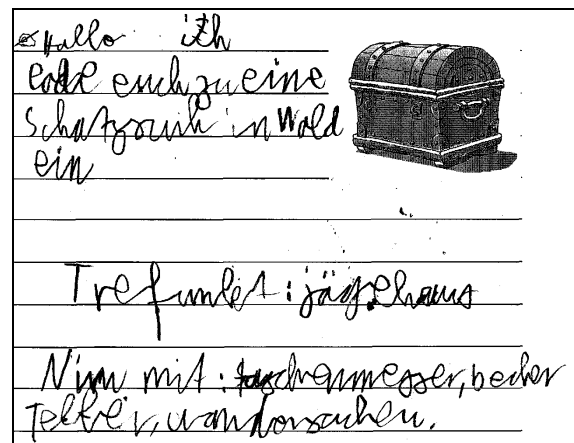 Hallo ich
lade euch zu eine
Schatzsuch in Wald
ein
Trefunkt: jägehaus
Nim mit: taschenmesser, becher
Teller, wandersachen.